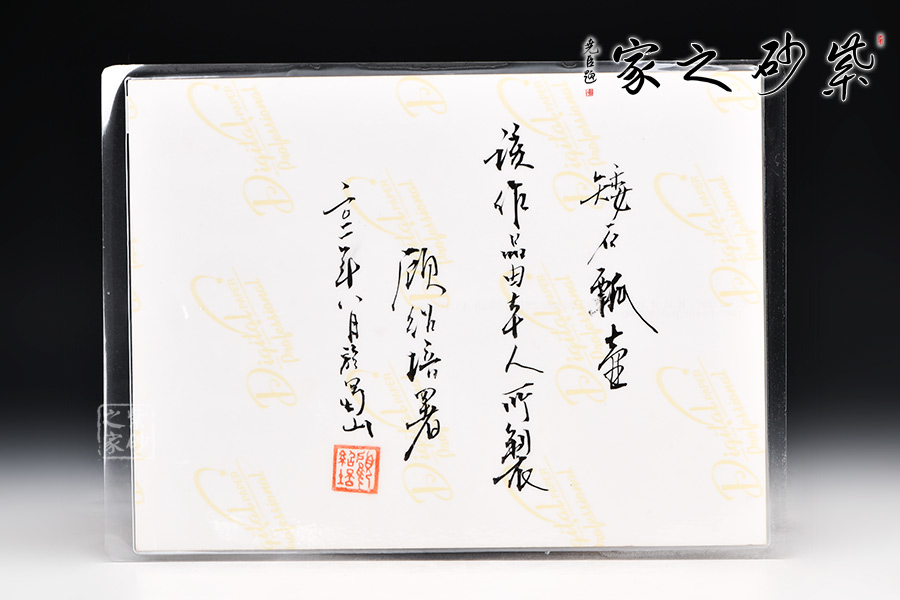 紫砂之家
尧臣题
矮石瓢壶
该作品由本人所製
顾绍培署
二〇一一年八月於蜀山
顾绍培
Digital
Professional
之家